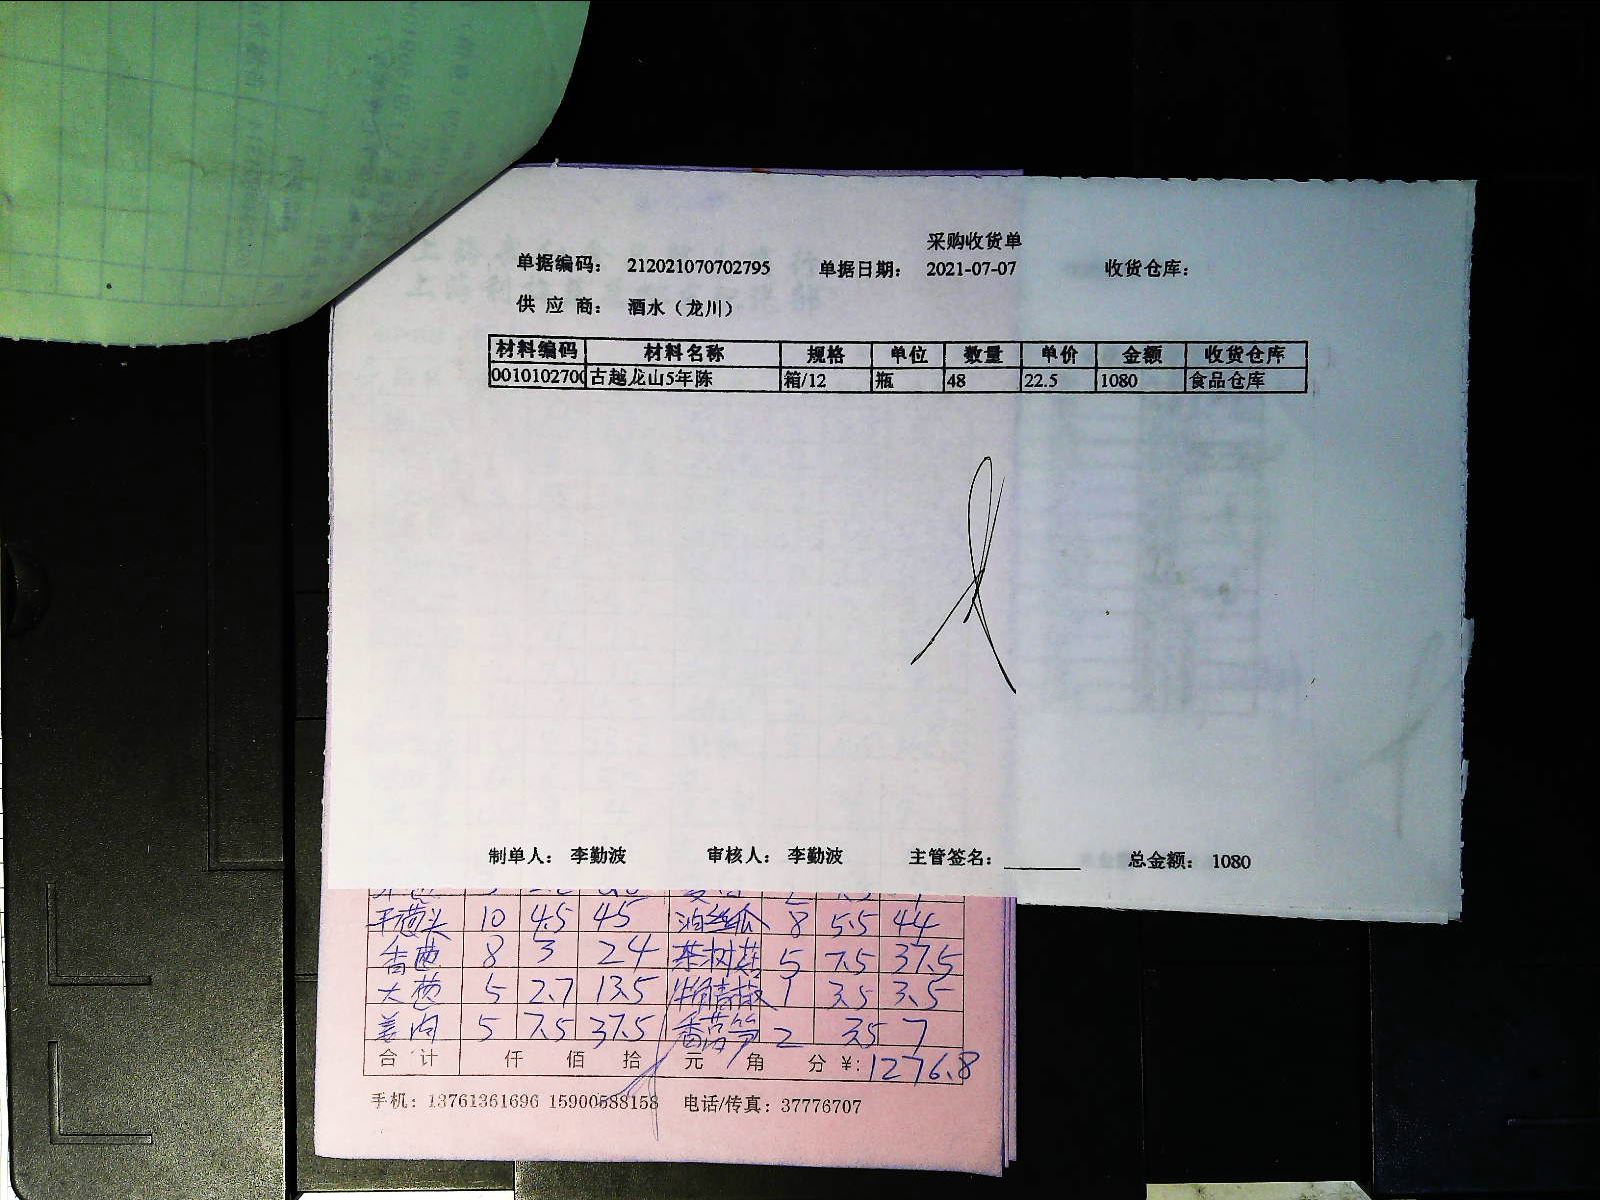 采购收货单
单据编码: 212021070702795 单据日期: 2021-07-07 收货仓库:
供 应 商: 酒水（龙川）
材料编码 材料名称 规格 单位 数量 单价 金额 收货仓库
0010102700 古越龙山5年陈 箱/12 瓶 48 22.5 1080 食品仓库
制单人: 李勤波 审核人: 李勤波 主管签名: 总金额: 1080
平菇头 10 4.5 45 8 5.5 44
香菌 8 3 24 茶树菇 5 7.5 37.5
大葱 5 2.7 13.5 牛角青椒 1 3.5 3.5
姜肉 5 7.5 37.5 2 3.5 7
合 计 仟 佰 拾 元 角 分 ¥: 1276.8
手机: 13761361696 15900588158 电话/传真: 37776707